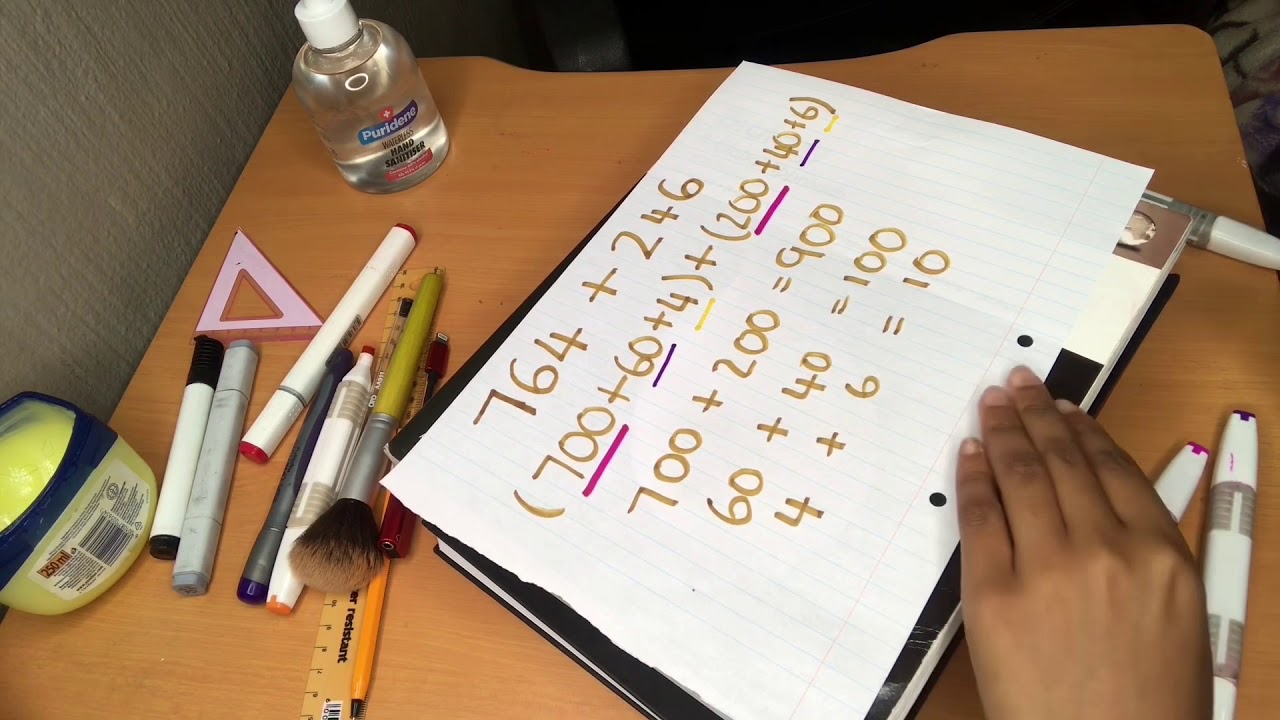 Puridene
WATERLESS
HAND
SANITISER
764 + 246
(700+60+4)+(200+40+6)
700 + 200 = 900
60 + 40 = 100
4 + 6 = 10
250 ml
resistant